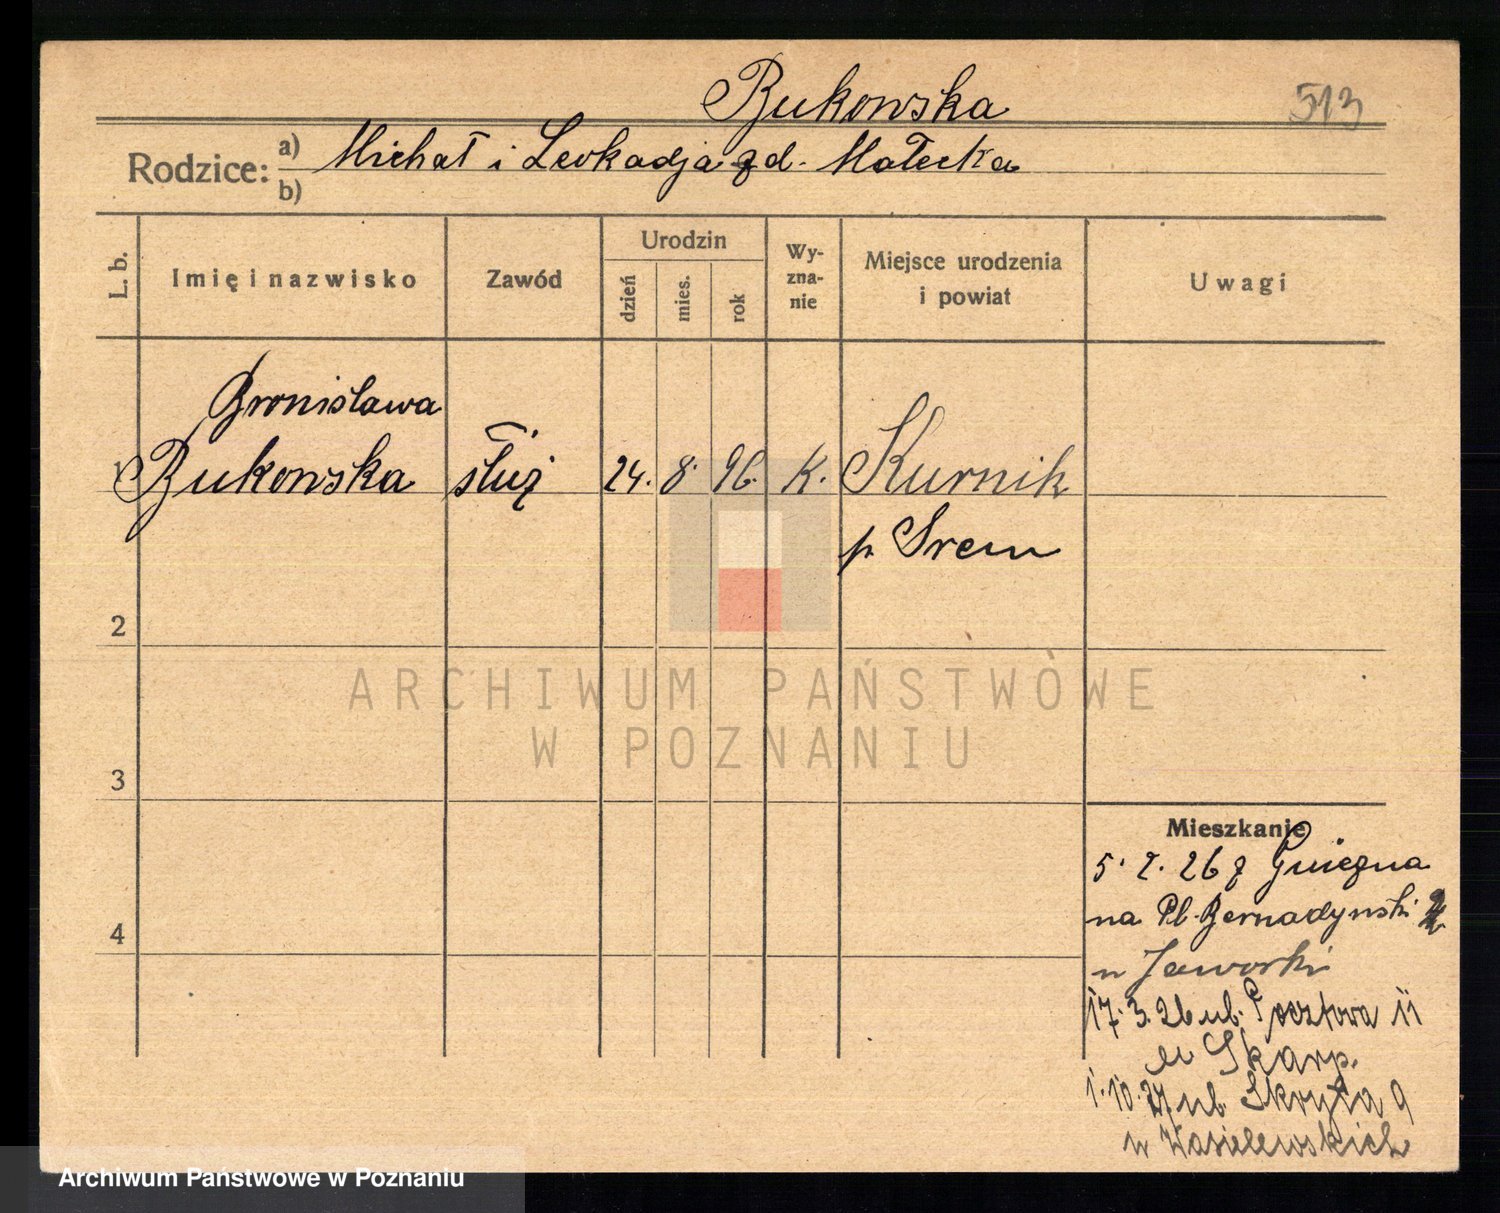 Bukowska
513
Rodzice: a) Michał i Leokadja zd. Małecka
b)
L. b.
Imię i nazwisko
Zawód
Urodzin
dzień
mies.
rok
Wy-
zna-
nie
Miejsce urodzenia
i powiat
Uwagi
Bronisława
1 Bukowska służ 24. 8. 96. K. Kurnik
p. Srem
2
3
4
ARCHIWUM PAŃSTWOWE
W POZNANIU
Mieszkanie
5. 2. 26 z Gniezna
na Pl. Bernadynski
u Jaworski
17. 3. 26 ul. Pocztowa 11
u Skarp.
1. 10. 27 ul. Skryta 9
u Wasielewskich
Archiwum Państwowe w Poznaniu